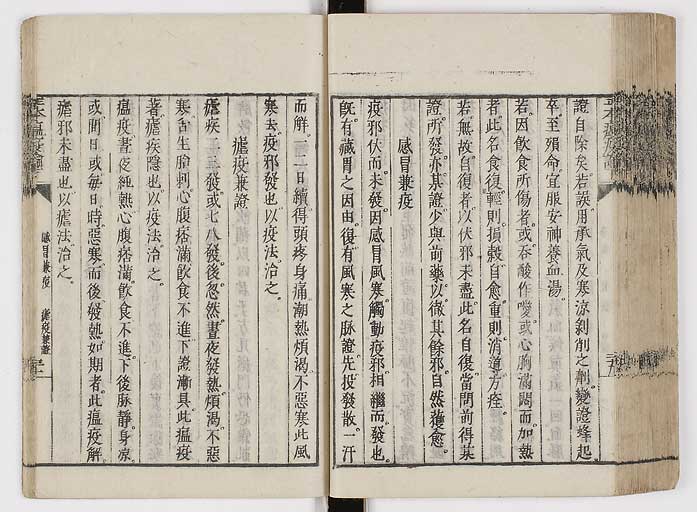 證自除矣若誤用承氣及寒涼剝削之劑變證蜂起
卒至殞命宜服安神養血湯
若因飲食所傷者或吞酸作噯或心胸滿悶而加熱
者此名食復輕則損穀自愈重則消導方痊
若無故自復者以伏邪未盡此名自復當問前得某
證所發亦某證少與前藥以徹其餘邪自然獲愈
感冒兼疫
疫邪伏而未發因感冒風寒觸動疫邪相繼而發也
既有感冒之因由復有風寒之脉證先投發散一汗
而解一二日續得頭疼身痛潮熱煩渴不惡寒此風
寒去疫邪發也以疫法治之
瘧疫兼證
瘧疾二三發或七八發後忽然晝夜發熱煩渴不惡
寒舌生胎刺心腹痞滿飲食不進下證漸具此瘟疫
著瘧疾隱也以疫法治之
瘟疫晝夜純熱心腹痞滿飲食不進下後脉靜身凉
或間日或每日時惡寒而後發熱如期者此瘟疫解
瘧邪未盡也以瘧法治之
感冒兼疫
瘧疫兼證